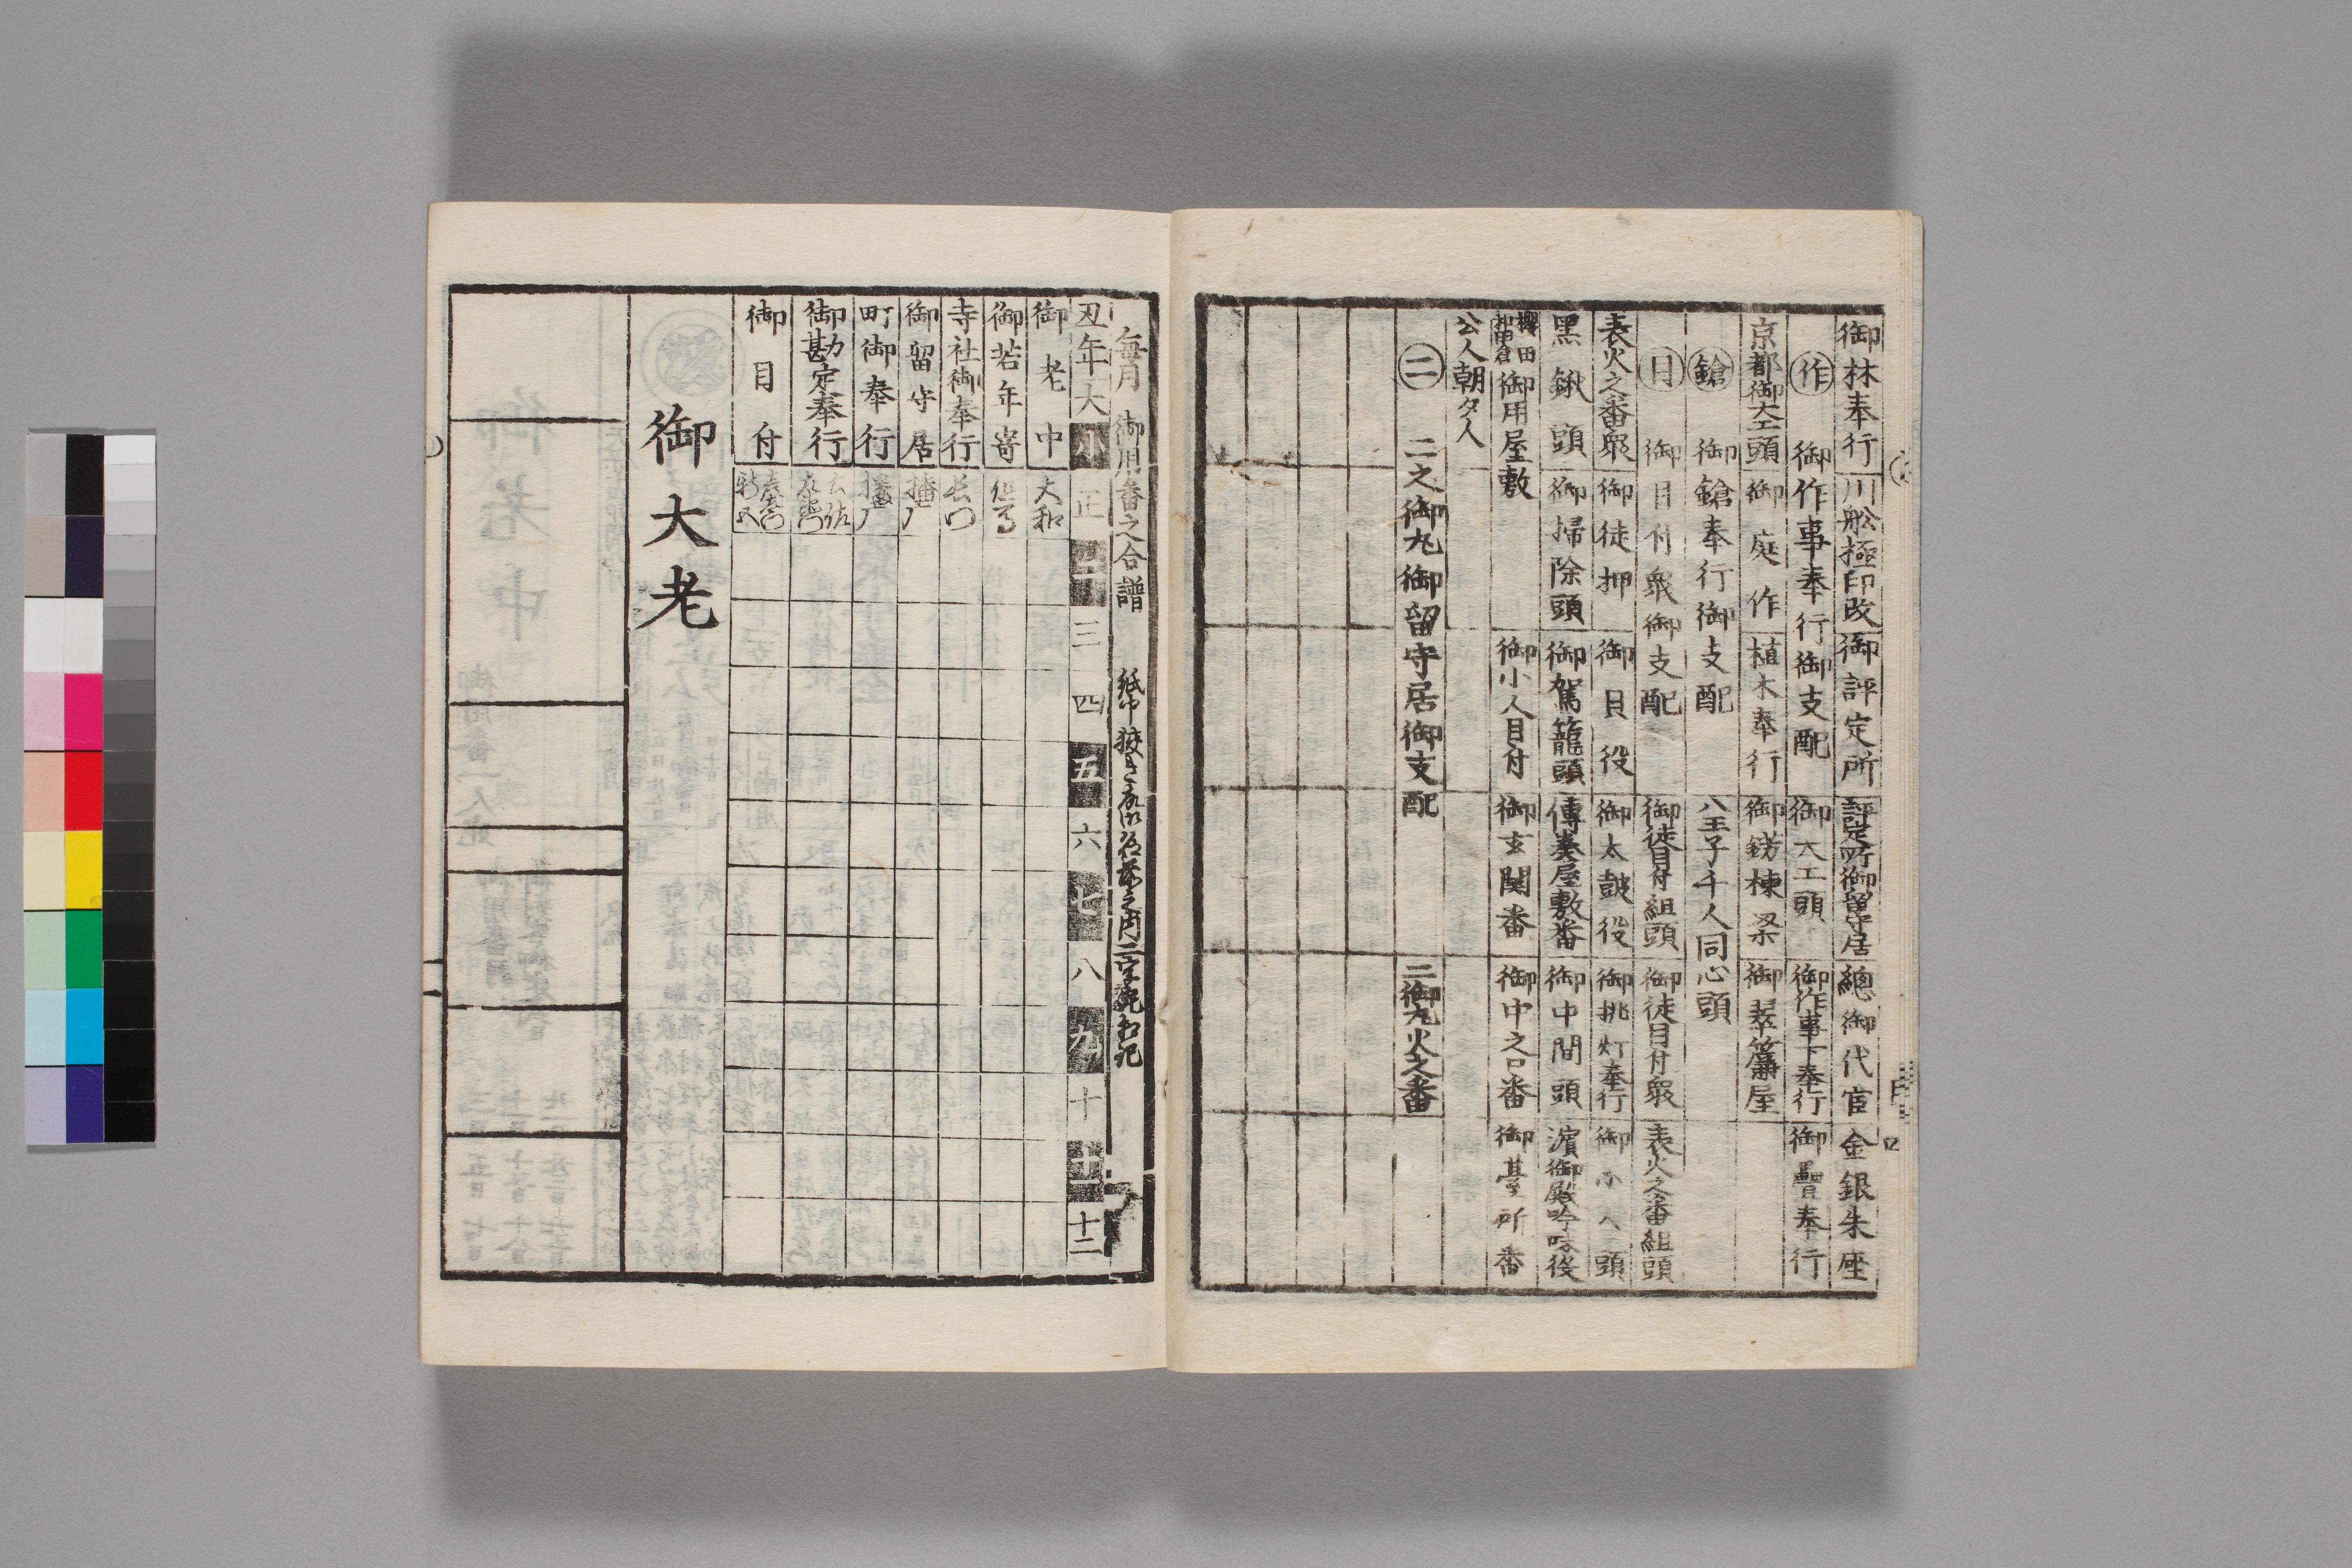 御林奉行 川舩極印改 御評定所 評定所御留守居 總御代官 金銀朱座
作 御作事奉行御支配 御大工頭 御作事下奉行 御疊奉行
京都御大工頭 御庭作 植木奉行 御錺棟梁 御翠簾屋
鎗 御鎗奉行御支配 八王子千人同心頭
目 御目付衆御支配 御徒目付組頭 御徒目付衆 表火之番組頭
表火之番衆 御徒押 御貝役 御太皷役 御挑灯奉行 御小人頭
黒鍬頭 御掃除頭 御駕籠頭 傳奏屋敷番 御中間頭 濵御殿吟味役
櫻田 御用屋敷 御小人目付 御玄関番 御中之口番 御臺所番
公人朝夕人
二 二之御丸御留守居御支配 二御丸火之番
毎月 御用番之合譜 紙中狹き故御名前之内二字宛相記
丑年大小 正 二 三 四 五 六 七 八 九 十 十一 十二
御老中 大和
御若年寄 但馬
寺社御奉行 長門
御留守居 播广
町御奉行 播广
御勘定奉行
御目付
御大老